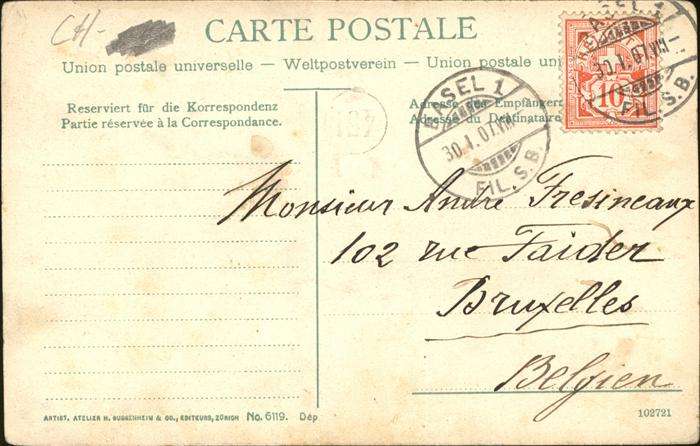 CH-
CARTE POSTALE
Union postale universelle — Weltpostverein — Union postale uni
Reserviert für die Korrespondenz
Partie réservée à la Correspondance.
Adresse des Empfängers
Adresse du Destinataire
BASEL 1
30.1.07.VII
FIL. S.B.
BASEL 1
30.1.07.VII
FIL. S.B.
10
Monsieur André Fresineaux
102 rue Faider
Bruxelles
Belgien
ARTIST. ATELIER H. GUGGENHEIM & CO., EDITEURS, ZÜRICH No. 6119. Dép
102721